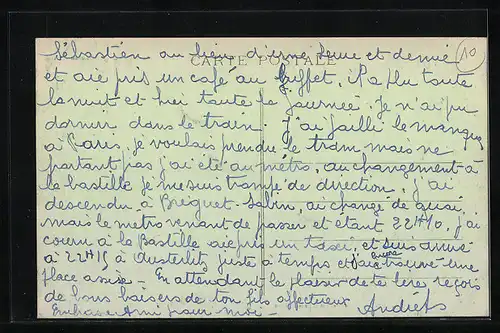 CARTE POSTALE
10
Sébastien au lieu d'une heure et demie
et aie pris un café au Buffet, il a plu toute
la nuit et hier toute la journée. Je n'ai pu
dormir dans le train. J'ai failli le manquer
à Paris, je voulais prendre le tram mais ne
partant pas j'ai été au métro, au changement à
la bastille je me suis trompé de direction, j'ai
descendu à Breguet-Sabin, ai changé de quai,
mais le metro venant de passer et étant 22H10, j'ai
couru à la Bastille ai pris un taxi, et suis arrivé
à 22H15 à Austerlitz juste à temps et j'ai encore trouvé une
place assise - En attendant le plaisir de te lire, reçois
de bons baisers de ton fils affectueux
Embrasse Ami pour moi - André